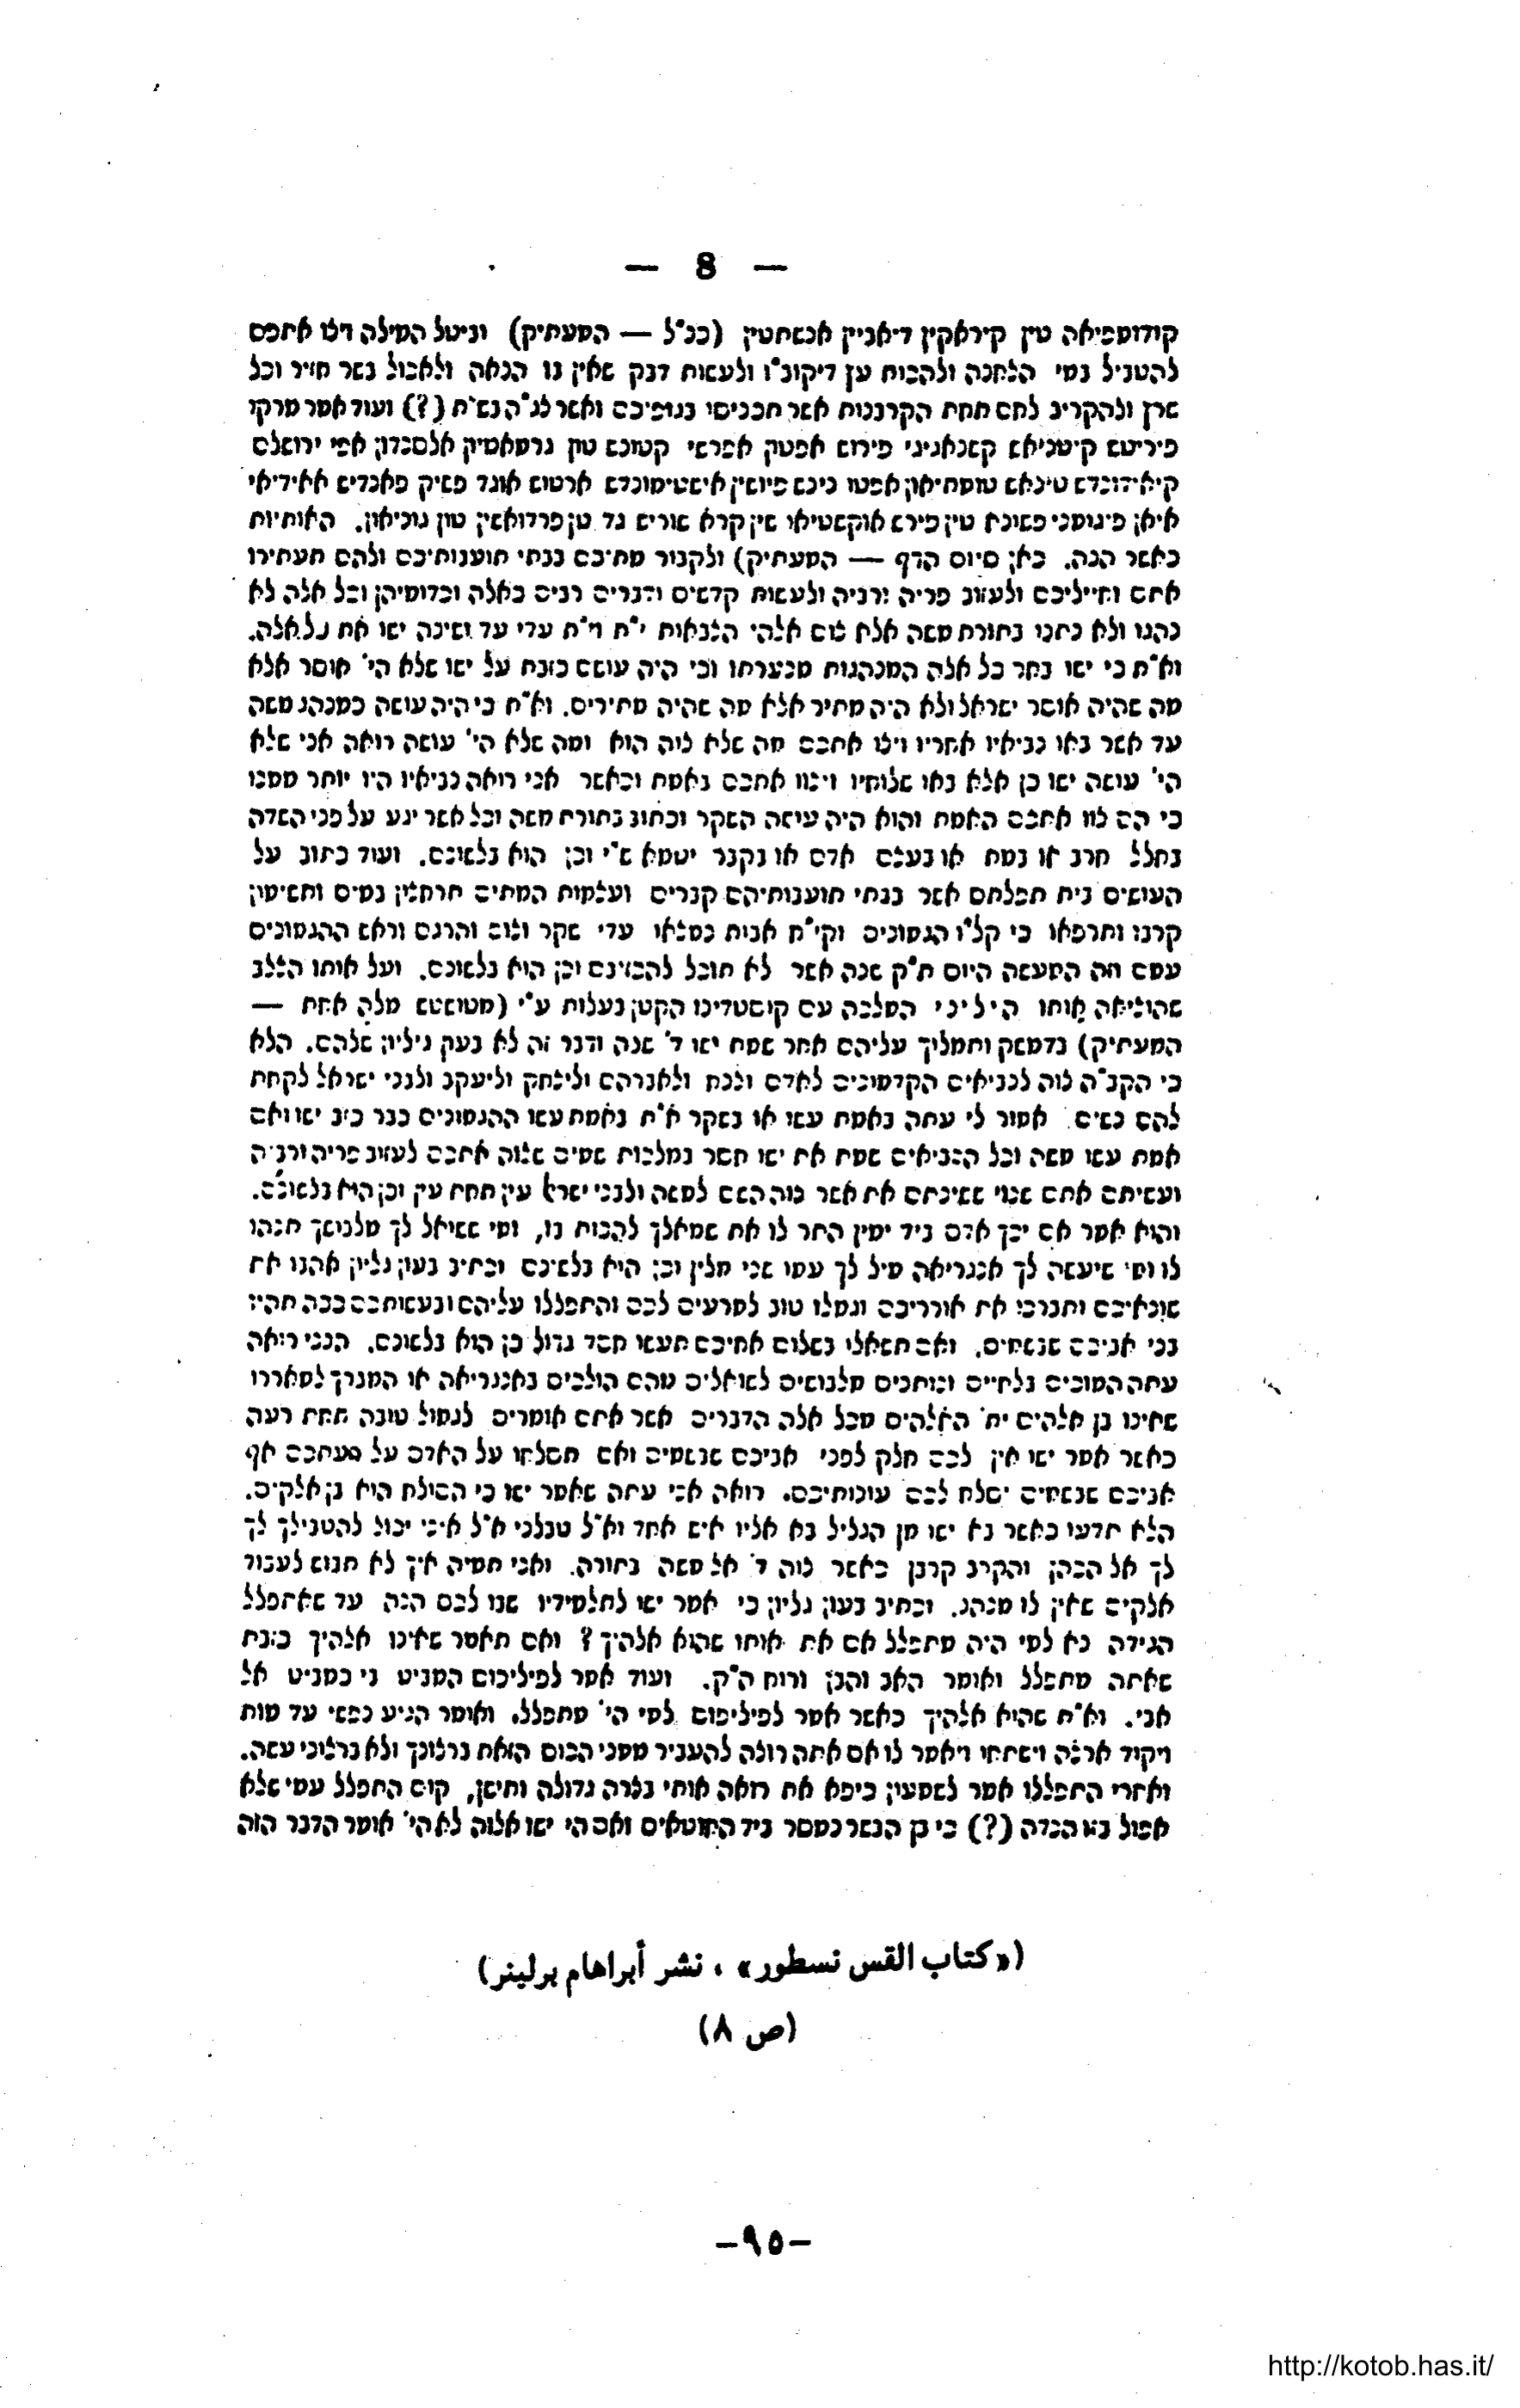 — 8 —
קודומפיאה טין קיראקין דיאניין אנשתטין (כנ"ל — המעתיק) וניטל המילה ויצו אתכם
להטביל במי הלחנה ולהכות ען דיקונ"ו ולעשות דבק שאין בו הנאה ולאכול בשר חזיר וכל
שרץ ולהקריב לחם תחת הקרבנות אשר תכניסו בגופיכם ואשר לנ"ה בש"ח (?) ועוד אמר מרקו
פיריטש קישניאש
איאן
כאשר הנה. כאן סיום הדף — המעתיק) ולקבור מתיכם בבתי תועבותיכם ולהם תעתירו
אתם וחייליכם ולעזוב פריה ורביה ולעשות קדשים ודברים רבים כאלה וכדומיהן וכל אלה לא
נהגו ולא כתבו בתורת משה אלא שום אלהי הצבאות י"ת וי"ת עדי עד ושינה ישו את כל אלה.
וא"ת כי ישו בחר כל אלה המנהגות מנערתו וכי היה עושם כזבת על ישו שלא הי' אוסר אלא
מה שהיה אוסר ישראל ולא היה מתיר אלא מה שהיה מתירים. וא"ת כי היה עושה כמנהג משה
עד אשר באו נביאיו אחריו ויצו אתכם מה שלא צוה הוא ומה שלא הי' עושה רואה אני שלא
הי' עושה ישו כן אלא באו שלוחיו ויצוו אתכם באמת וכאשר אני רואה נביאיו היו יותר ממנו
כי הם צוו אתכם האמת והוא היה עושה השקר וכתוב בתורת משה וכל אשר יגע על פני השדה
בחלל חרב או במת או בעצם אדם או בקבר יטמא ש"י וכן הוא בלשונם. ועוד כתוב על
העושים בית תפלתם אשר בבתי תועבותיהם קברים ועצמות המתים תרחצון במים ותשימון
קרבו ותרפאו כי קל"ו הגמונים וקי"ח אבות נמצאו עדי שקר וצום והרגם וראש ההגמונים
עמם וזה המעשה היום ת"ק שנה אשר לא תוכל להכזיבם וכן הוא בלשונם. ועל אותו הצלב
שהוציאה אותו הילני המלכה עם קוסטדינו הקטן בעלות ע"י (מטושטש מלה אחת —
המעתיק) בדמשק ותמליך עליהם אחר שמת ישו ד' שנה ודבר זה לא בעון גיליון שלהם. הלא
כי הקב"ה צוה לנביאים הקדמונים לאדם ולנח ולאברהם וליצחק וליעקב ולבני ישראל לקחת
להם נשים. אמור לי עתה באמת עשו או בשקר א"ת באמת עשו ההגמונים כבר כזב ישו ואם
אמת עשו משה וכל הנביאים שמח את ישו חסר במלכות שמים שצוה אתכם לעזוב פריה ורביה
ועשיתם אתם שנוי ששינתם את אשר צוה השם למשה ולבני ישראל עין תחת עין וכן הוא בלשונם.
והוא אמר אם יכך אדם ביד ימין החר לו את שמאלך להכות בו, ומי ששואל לך מלבושך תנהו
לו ומי שיעשה לך אנגריאה מיל לך עמו שני מלין וכן הוא בלשונם וכתיב בעון גליון אהבו את
שונאיכם ותברכו את אורריכם וגמלו טוב למרעים לכם והתפללו עליהם ובעשותכם ככה תהיו
בני אביכם שבשמים. ואם תשאלו בשלום אחיכם תעשו חסד גדול כן הוא בלשונם. הנני רואה
עתה המוכים בלחיים ונותנים מלבושים לשואלים מהם הולכים באנגריאה או המברך למאררו
שאינו בן אלהים ית' האלהים מכל אלה הדברים אשר אתם אומרים לגמול טובה תחת רעה
כאשר אמר ישו אין לכם חלק לפני אביכם שבשמים ואם תסלחו על האדם על מעתכם אף
אביכם שבשמים יסלח לכם עונותיכם. רואה אני עתה שאמר ישו כי הסולח הוא בן אלקים.
הלא תדעו כאשר בא ישו מן הגליל בא אליו איש אחד וא"ל טבלני א"ל איני יכול להטבילך לך
לך אל הכהן והקרב קרבן כאשר צוה ד' אל משה בתורה. ואני תמיה איך לא תבוש לעבוד
אלקים שאין לו מנהג. וכתיב בעון גליון כי אמר ישו לתלמידיו שבו לכם הנה עד שאתפלל
הגידה נא למי היה מתפלל אם את אותו שהוא אלהיך? ואם תאמר שאינו אלהיך כזבת
שאתה מתפלל ואומר האב והבן ורוח ה"ק. ועוד אמר לפיליפום המביט בי כמביט אל
אבי. וא"ת שהוא אלהיך כאשר אמר לפיליפום למי הי' מתפלל. ואומר הגיע נפשי עד מות
ויקוד ארצה וישתחו ויאמר לו אם אתה רוצה להעביר ממני הכוס הזאת ברצונך ולא ברצוני עשה.
ואחרי התפללו אמר לשמעון כיפא את רואה אותי בצרה גדולה ותישן, קום התפלל עמי שלא
אפול בא הנדה (?) כי בן הבשר נמסר ביד החוטאים ואם הי' ישו אלוה לא הי' אומר הדבר הזה
(«كتاب القس نسطور» ، نشر أبراهام برلينر)
(ص ٨)
–٩٥–
http://kotob.has.it/